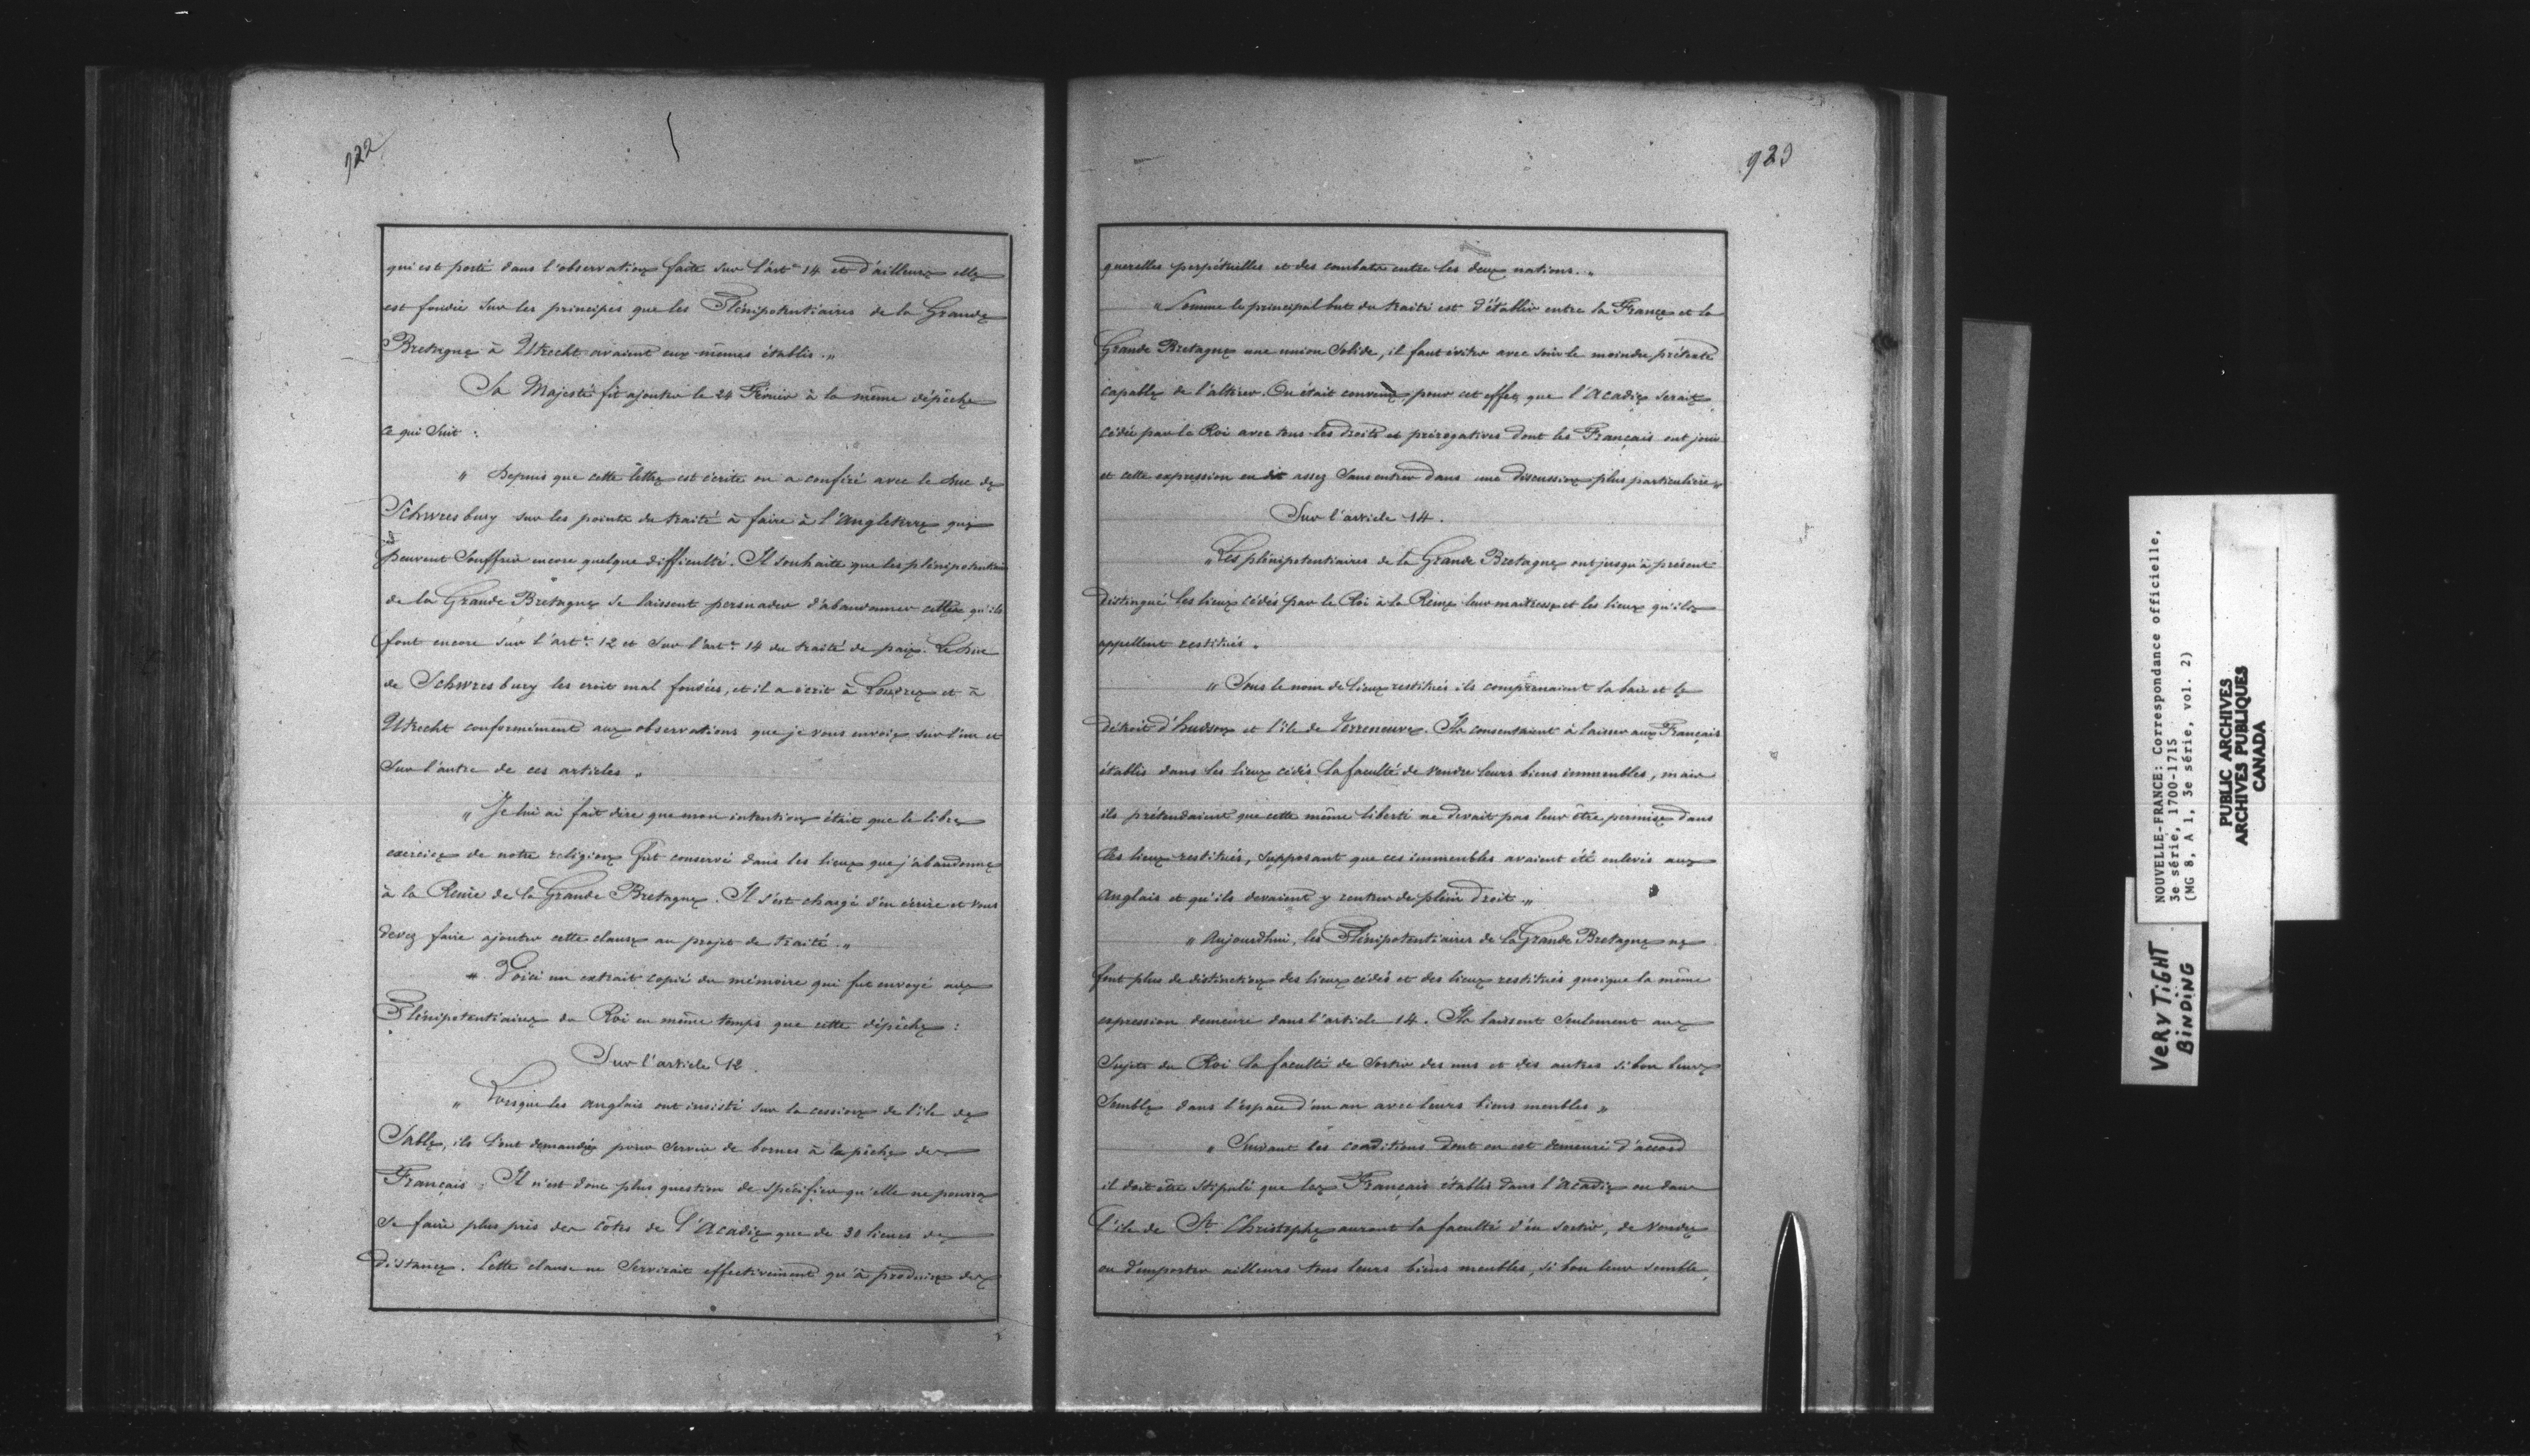 922
qui est porté dans l'observation faite sur l'art.e 14 et d'ailleurs elle
est fondée sur les principes que les Plénipotentiaires de la Grande
Bretagne à Utrecht avaient eux mêmes établis. "
Sa Majesté fit ajouter le 24 Février à la même dépêche
ce qui suit :
" Depuis que cette lettre est écrite on a conféré avec le Duc de
Schwresbury sur les points du traité à faire à l'Angleterre qui
peuvent souffrir encore quelque difficulté. Il souhaite que les plénipotentiaires
de la Grande Bretagne se laissent persuader d'abandonner celles qu'ils
font encore sur l'art.e 12 et sur l'art.e 14 du traité de paix. Le Duc
de Schwresbury les croit mal fondées, et il a écrit à Londres et à
Utrecht conformément aux observations que je vous envoie sur l'un et
sur l'autre de ces articles "
" Je lui ai fait dire que mon intention était que le libre
exercice de notre religion fût conservé dans les lieux que j'abandonne
à la Reine de la Grande Bretagne. Il s'est chargé d'en écrire et vous
devez faire ajouter cette clause au projet de traité. "
" Voici un extrait copié du mémoire qui fut envoyé aux
Plénipotentiaires du Roi en même temps que cette dépêche :
Sur l'article 12.
" Lorsque les Anglais ont insisté sur la cession de l'île de
Sable, ils l'ont demandée pour servir de bornes à la pêche des
Français ; Il n'est donc plus question de spécifier qu'elle ne pourra
se faire plus près des côtes de l'Acadie que de 30 lieues de
distance. Cette clause ne servirait effectivement qu'à produire des
923
querelles perpétuelles et des combats entre les deux nations. "
" Comme le principal but du traité est d'établir entre la France et la
Grande Bretagne une union solide, il faut éviter avec soin le moindre prétexte
capable de l'altérer. On était convenu, pour cet effet, que l'Acadie serait
cédée par le Roi avec tous les droits et prérogatives dont les Français ont joui
et cette expression en dit assez sans entrer dans une discussion plus particulière "
Sur l'article 14.
" Les plénipotentiaires de la Grande Bretagne ont jusqu'à présent
distingué les lieux cédés par le Roi à la Reine leur maîtresse et les lieux qu'ils
appellent restitués "
" Sous le nom de lieux restitués ils comprenaient la baie et le
détroit d'hudson et l'île de Terreneuve. Ils consentaient à laisser aux Français
établis dans les lieux cédés la faculté de vendre leurs biens immeubles, mais
ils prétendaient que cette même liberté ne devait pas leur être permise dans
les lieux restitués, supposant que ces immeubles avaient été enlevés aux
Anglais et qu'ils devaient y rentrer de plein droit. "
" Aujourdhui, les Plénipotentiaires de la Grande Bretagne ne
font plus de distinction des lieux cédés et des lieux restitués quoique la même
expression demeure dans l'article 14. Ils laissent seulement aux
sujets du Roi la faculté de sortir des uns et des autres si bon leur
semble dans l'espace d'un an avec leurs biens meubles "
" Suivant les conditions dont on est demeuré d'accord
il doit être stipulé que les Français établis dans l'Acadie ou dans
l'île de St Christophe auront la faculté d'en sortir, de vendre
ou d'emporter ailleurs tous leurs biens meubles, si bon leur semble,
NOUVELLE-FRANCE: Correspondance officielle,
3e série, 1700-1715
(MG 8, A 1, 3e série, vol. 2)
PUBLIC ARCHIVES
ARCHIVES PUBLIQUES
CANADA
VERY TIGHT
BINDING